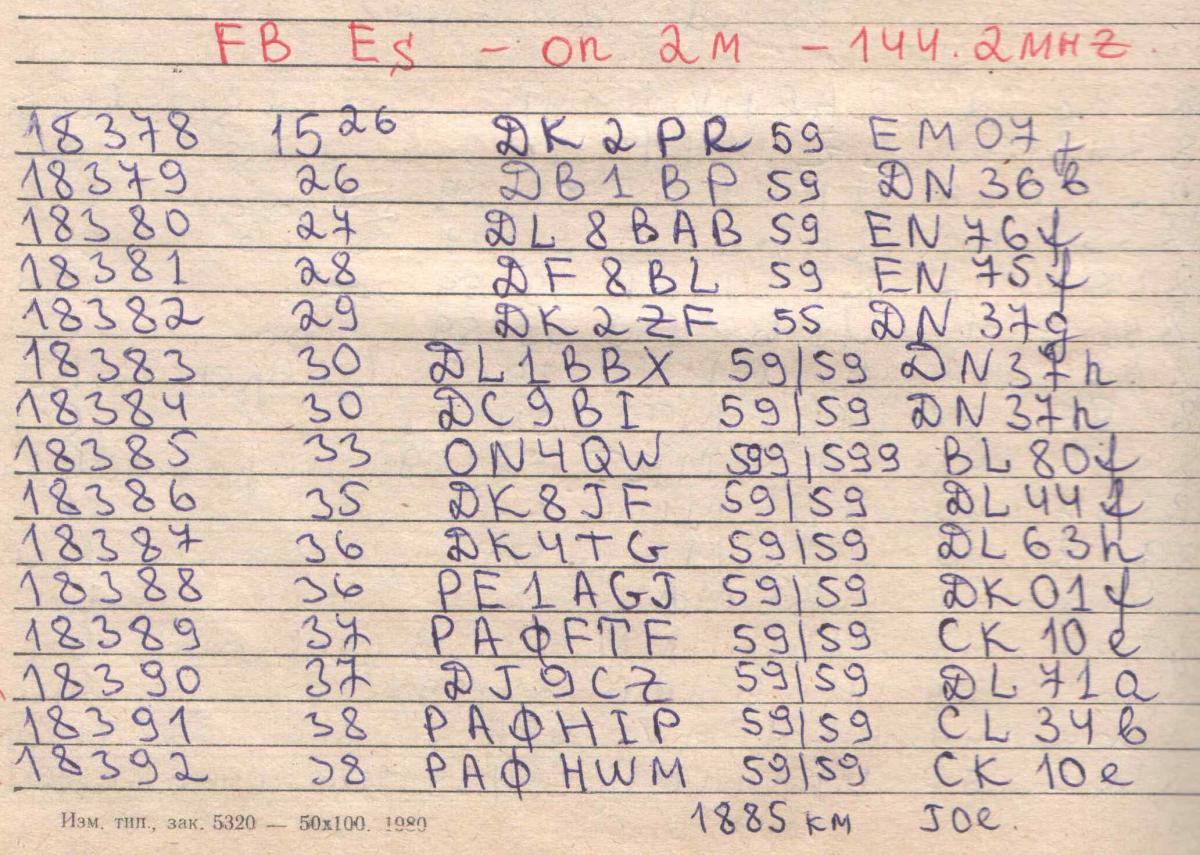 FB Es - on 2M - 144.2MHZ.
18378 15 26 DK2PR 59 EM07j
18379 26 DB1BP 59 DN36b
18380 27 DL8BAB 59 EN76f
18381 28 DF8BL 59 EN75f
18382 29 DK2ZF 55 DN37g
18383 30 DL1BBX 59/59 DN37h
18384 30 DC9BI 59/59 DN37h
18385 33 ON4QW 599/599 BL80f
18386 35 DK8JF 59/59 DL44f
18387 36 DK4TG 59/59 DL63h
18388 36 PE1AGJ 59/59 DK01f
18389 37 PAΦFTF 59/59 CK10e
18390 37 DJ9CZ 59/59 DL71a
18391 38 PAΦHIP 59/59 CL34b
18392 38 PAΦHWM 59/59 CK10e
Изм. тип., зак. 5320 — 50x100. 1980
1885 км Joe.